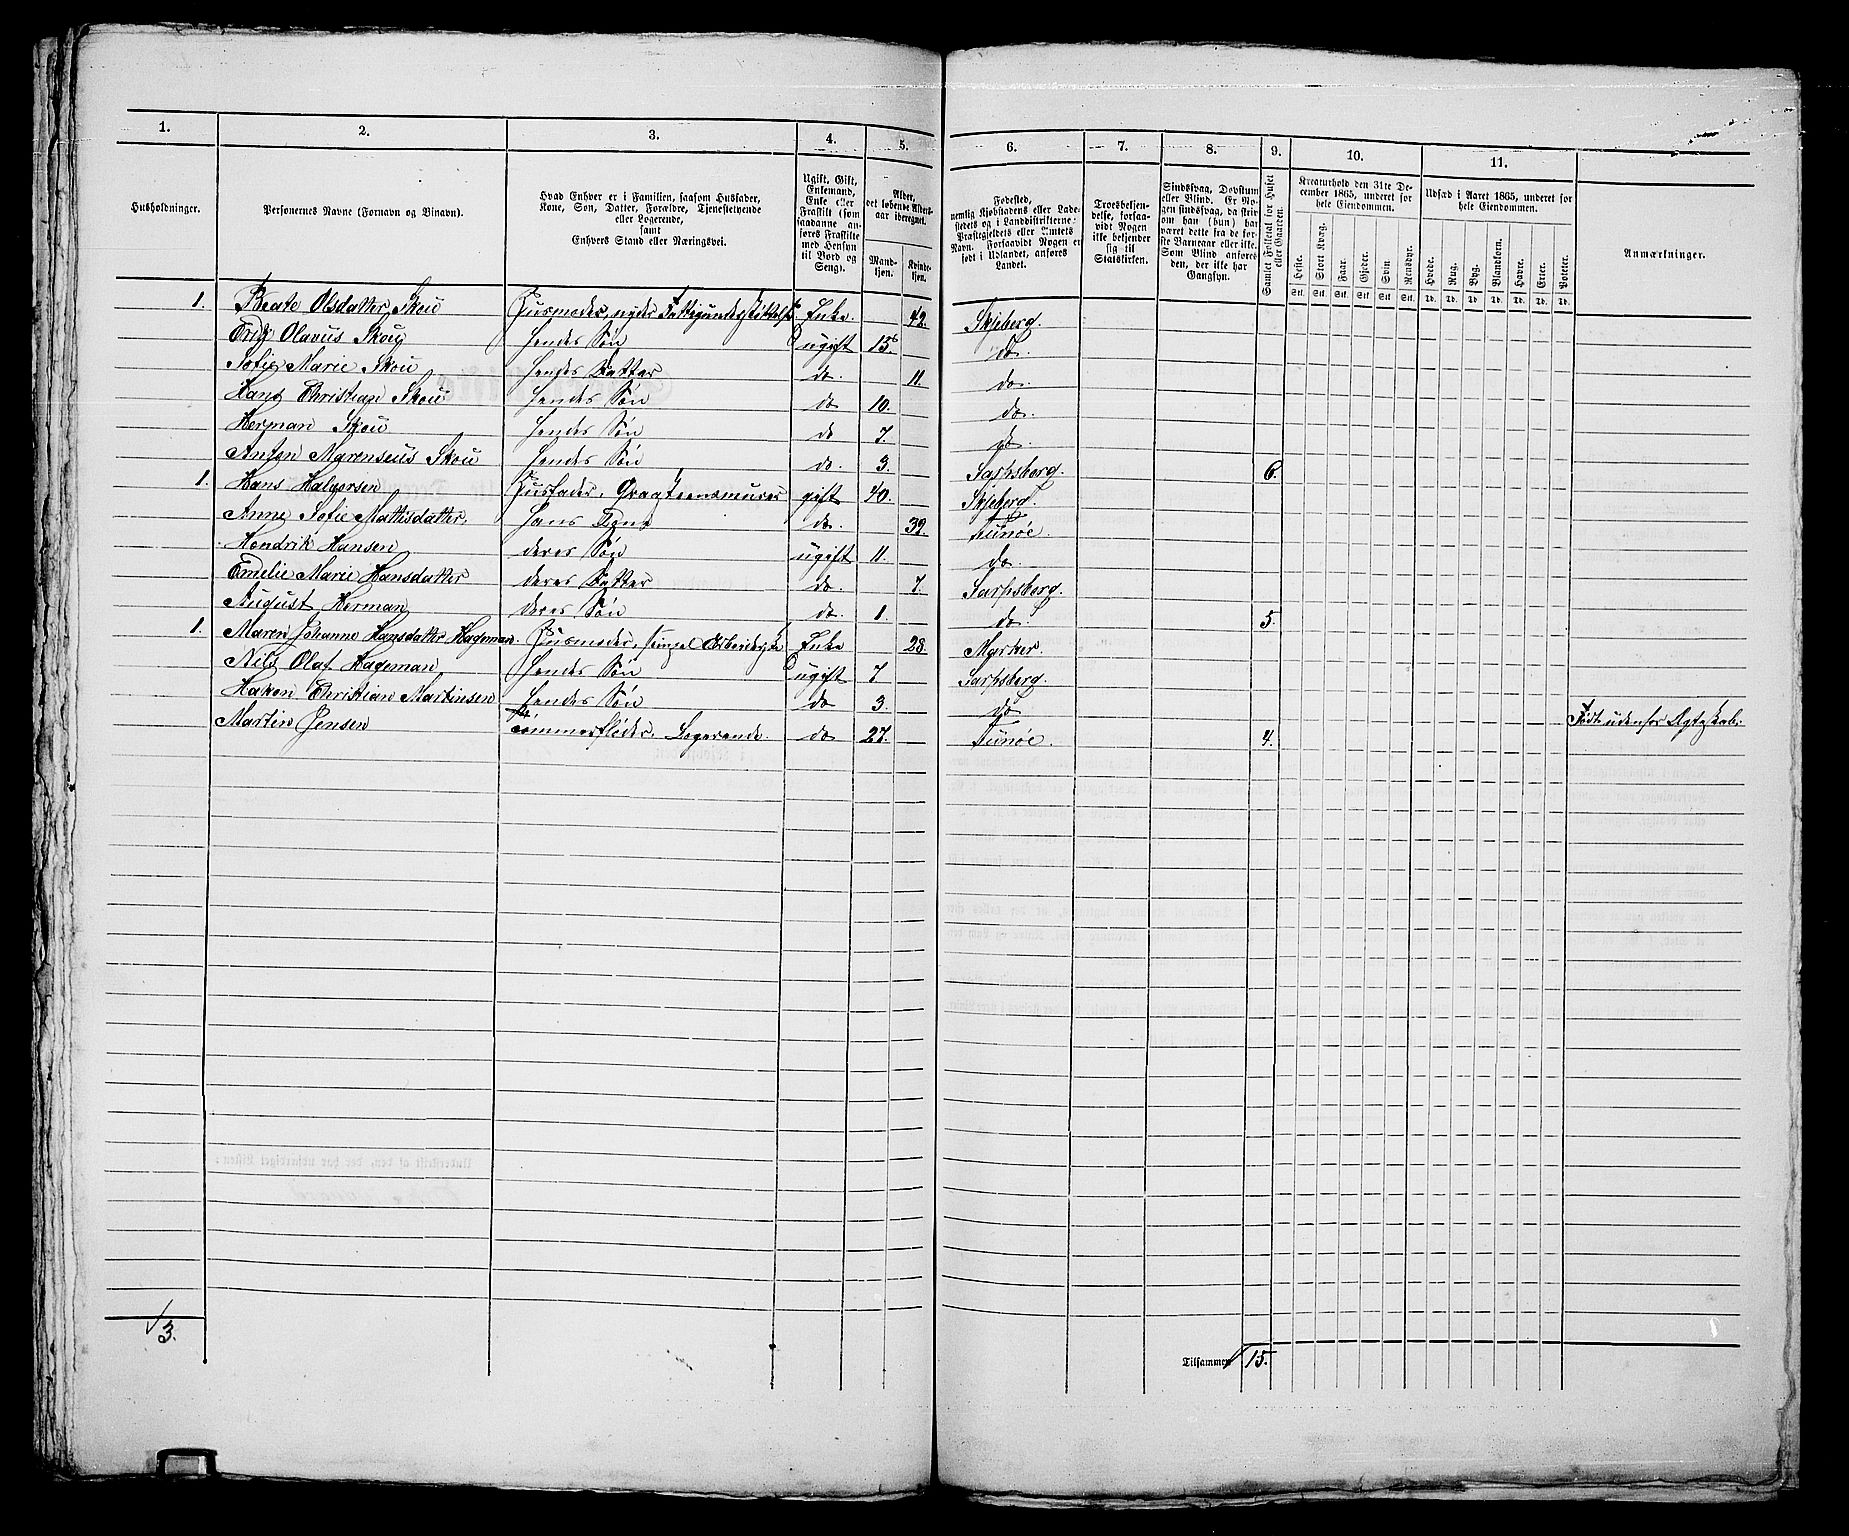 1. 2. 3. 4. 5. 6. 7. 8. 9. 10. 11.
Husholdninger.
Personernes Navne (Fornavn og Binavn).
Hvad Enhver er i Familien, saasom Husfader,
Kone, Søn, Datter, Forældre, Tjenestetyende
eller Logerende,
samt
Enhvers Stand eller Næringsvei.
Ugift, Gift,
Enkemand,
Enke eller
Fraskilt (som
saadanne an-
føres Fraskilte
med Hensyn
til Bord og
Seng).
Alder,
det løbende Alders-
aar iberegnet.
Mand-
kjøn.
Kvinde-
kjøn.
Fødested,
nemlig Kjøbstadens eller Lade-
stedets og i Landdistrikterne:
Præstegjeldets eller Amtets
Navn. Forsaavidt Nogen er
født i Udlandet, anføres
Landet.
Troesbekjen-
delse, forsaa-
vidt Nogen
ikke bekjender
sig til
Statskirken.
Sindssvag, Døvstum
eller Blind. Er No-
gen sindssvag, da skri-
ves om han (hun) har
været dette fra de før-
ste Barneaar eller ikke.
Som Blind anføres
den, der ikke har
Gangsyn.
Samlet Folketal for Huset
eller Gaarden.
Kreaturhold den 31te De-
cember 1865, underet for
hele Eiendommen.
Heste. Stort Kvæg. Faar. Gjeder. Svin Rensdyr.
Stk. Stk. Stk. Stk. Stk. Stk.
Udsæd i Aaret 1865, underet for
hele Eiendommen.
Hvede. Rug. Byg. Blandkorn. Havre. Erter. Poteter.
Td. Td. Td. Td. Td. Td. Td.
Anmærkninger.
1. Beate Olsdatter Skou Husmoder, nyder Fattigunderstøttelse. Enke. 42. Skjeberg.
Erik Olavus Skou hendes Søn ugift 15. do.
Sofie Marie Skou hendes Datter do. 11. do.
Hans Christian Skou hendes Søn do 10. do.
Herman Skou hendes Søn do 7. do.
Anton Marenseus Skou hendes Søn do. 3. Sarpsborg. 6.
1. Hans Halvorsen Husfader, gift 40. Skjeberg.
Anne Sofie Mattisdatter, hans Kone do. 39. Tunøe.
Hendrik Hansen deres Søn ugift 11. do.
Emelie Marie Hansdatter deres Datter do. 7. Sarpsborg.
August Herman deres Søn do. 1. do 5.
1. Maren Johanne Hansdatter Hageman. Husmoder, Enke 28. Marker.
Nils Olaf Hageman hendes Søn ugift 7 Sarpsberg.
Hakon Christian Martinsen hendes Søn do 3. do Født udenfor Ægteskab.
Martin Jensen Tømmerfløder, Logerende. do 27. Tunøe. 4.
3.
Tilsammen 15.